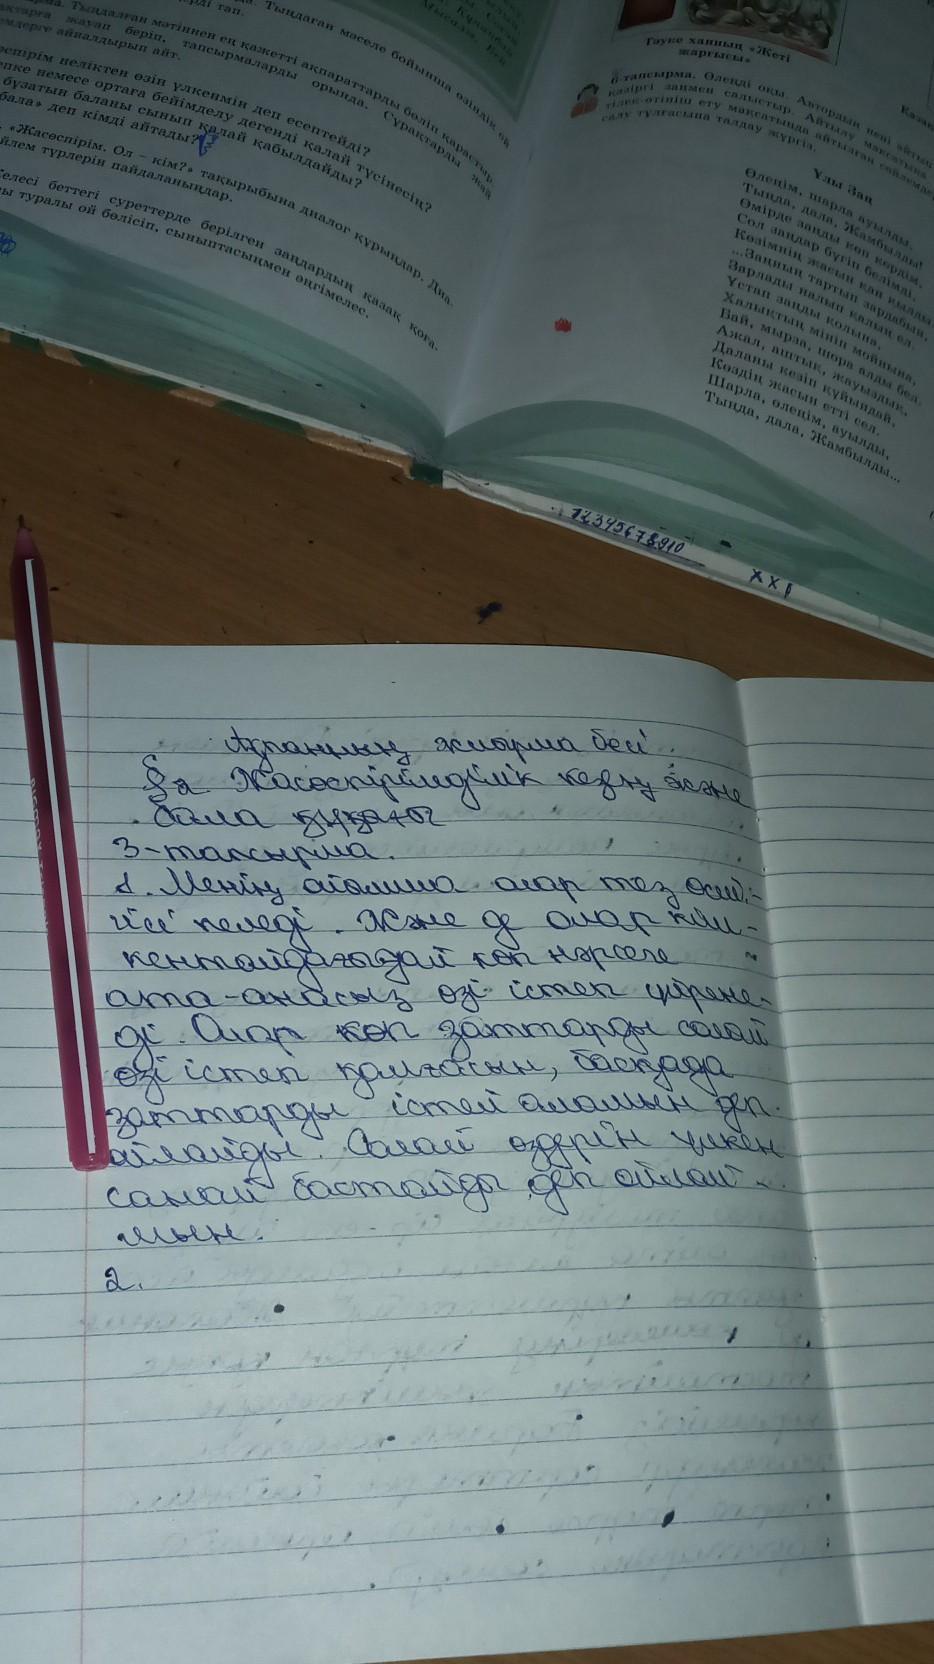 тап. Тыңдаған мәселе бойынша өзіндік ой
Тыңдалған мәтіннен ең қажетті ақпараттарды бөліп қарастыр.
жауап беріп, тапсырмаларды орында. Сұрақтарды жай
айналдырып айт.
неліктен өзін үлкенмін деп есептейді?
немесе ортаға бейімделу дегенді қалай түсінесің?
бұзатын баланы сынып қалай қабылдайды?
бала» деп кімді айтады?
«Жасөспірім. Ол – кім?» тақырыбына диалог құрыңдар. Диа-
түрлерін пайдаланыңдар.
беттегі суреттерде берілген заңдардың қазақ қоға-
туралы ой бөлісіп, сыныптасыңмен әңгімелес.
Тәуке ханның «Жеті
жарғысы»
6-тапсырма. Өлеңді оқы. Автордың нені айтып
қазіргі заңмен салыстыр. Айтылу мақсатына
тілек-өтініш ету мақсатында айтылған сөйлемде
салу тұлғасына талдау жүргіз.
Ұлы Заң
Өлеңім, шарла ауылды,
Тыңда, дала, Жамбылды!
Өмірде заңды көп көрдім,
Сол заңдар бүгіп белімді,
Көзімнің жасын қан қылды
...Заңның тартып зардабын,
Зарлады налып қалың ел.
Ұстап заңды қолына,
Халықтың мініп мойнына,
Бай, мырза, шора алды бел.
Ажал, аштық, жауыздық,
Даланы кезіп құйындай,
Көздің жасын етті сел.
Шарла, өлеңім, ауылды,
Тыңда, дала, Жамбылды...
12345678910
Ақпанның жиырма бесі.
§2 Жасөспірімділік кезең және
бала құқағы
3-тапсырма.
1. Менің ойымша олар тез өскі-
гісі келеді. Және де олар кіш-
кентайдағыдай көп нәрсеге
ата-анасыз өзі істеп үйрене-
ді. Олар көп заттарды солай
өзі істеп қалғасын, басқада
заттарды істей аламын деп
ойлайды. Солай өздерін үлкен
санай бастайды деп ойлай-
мын.
2.